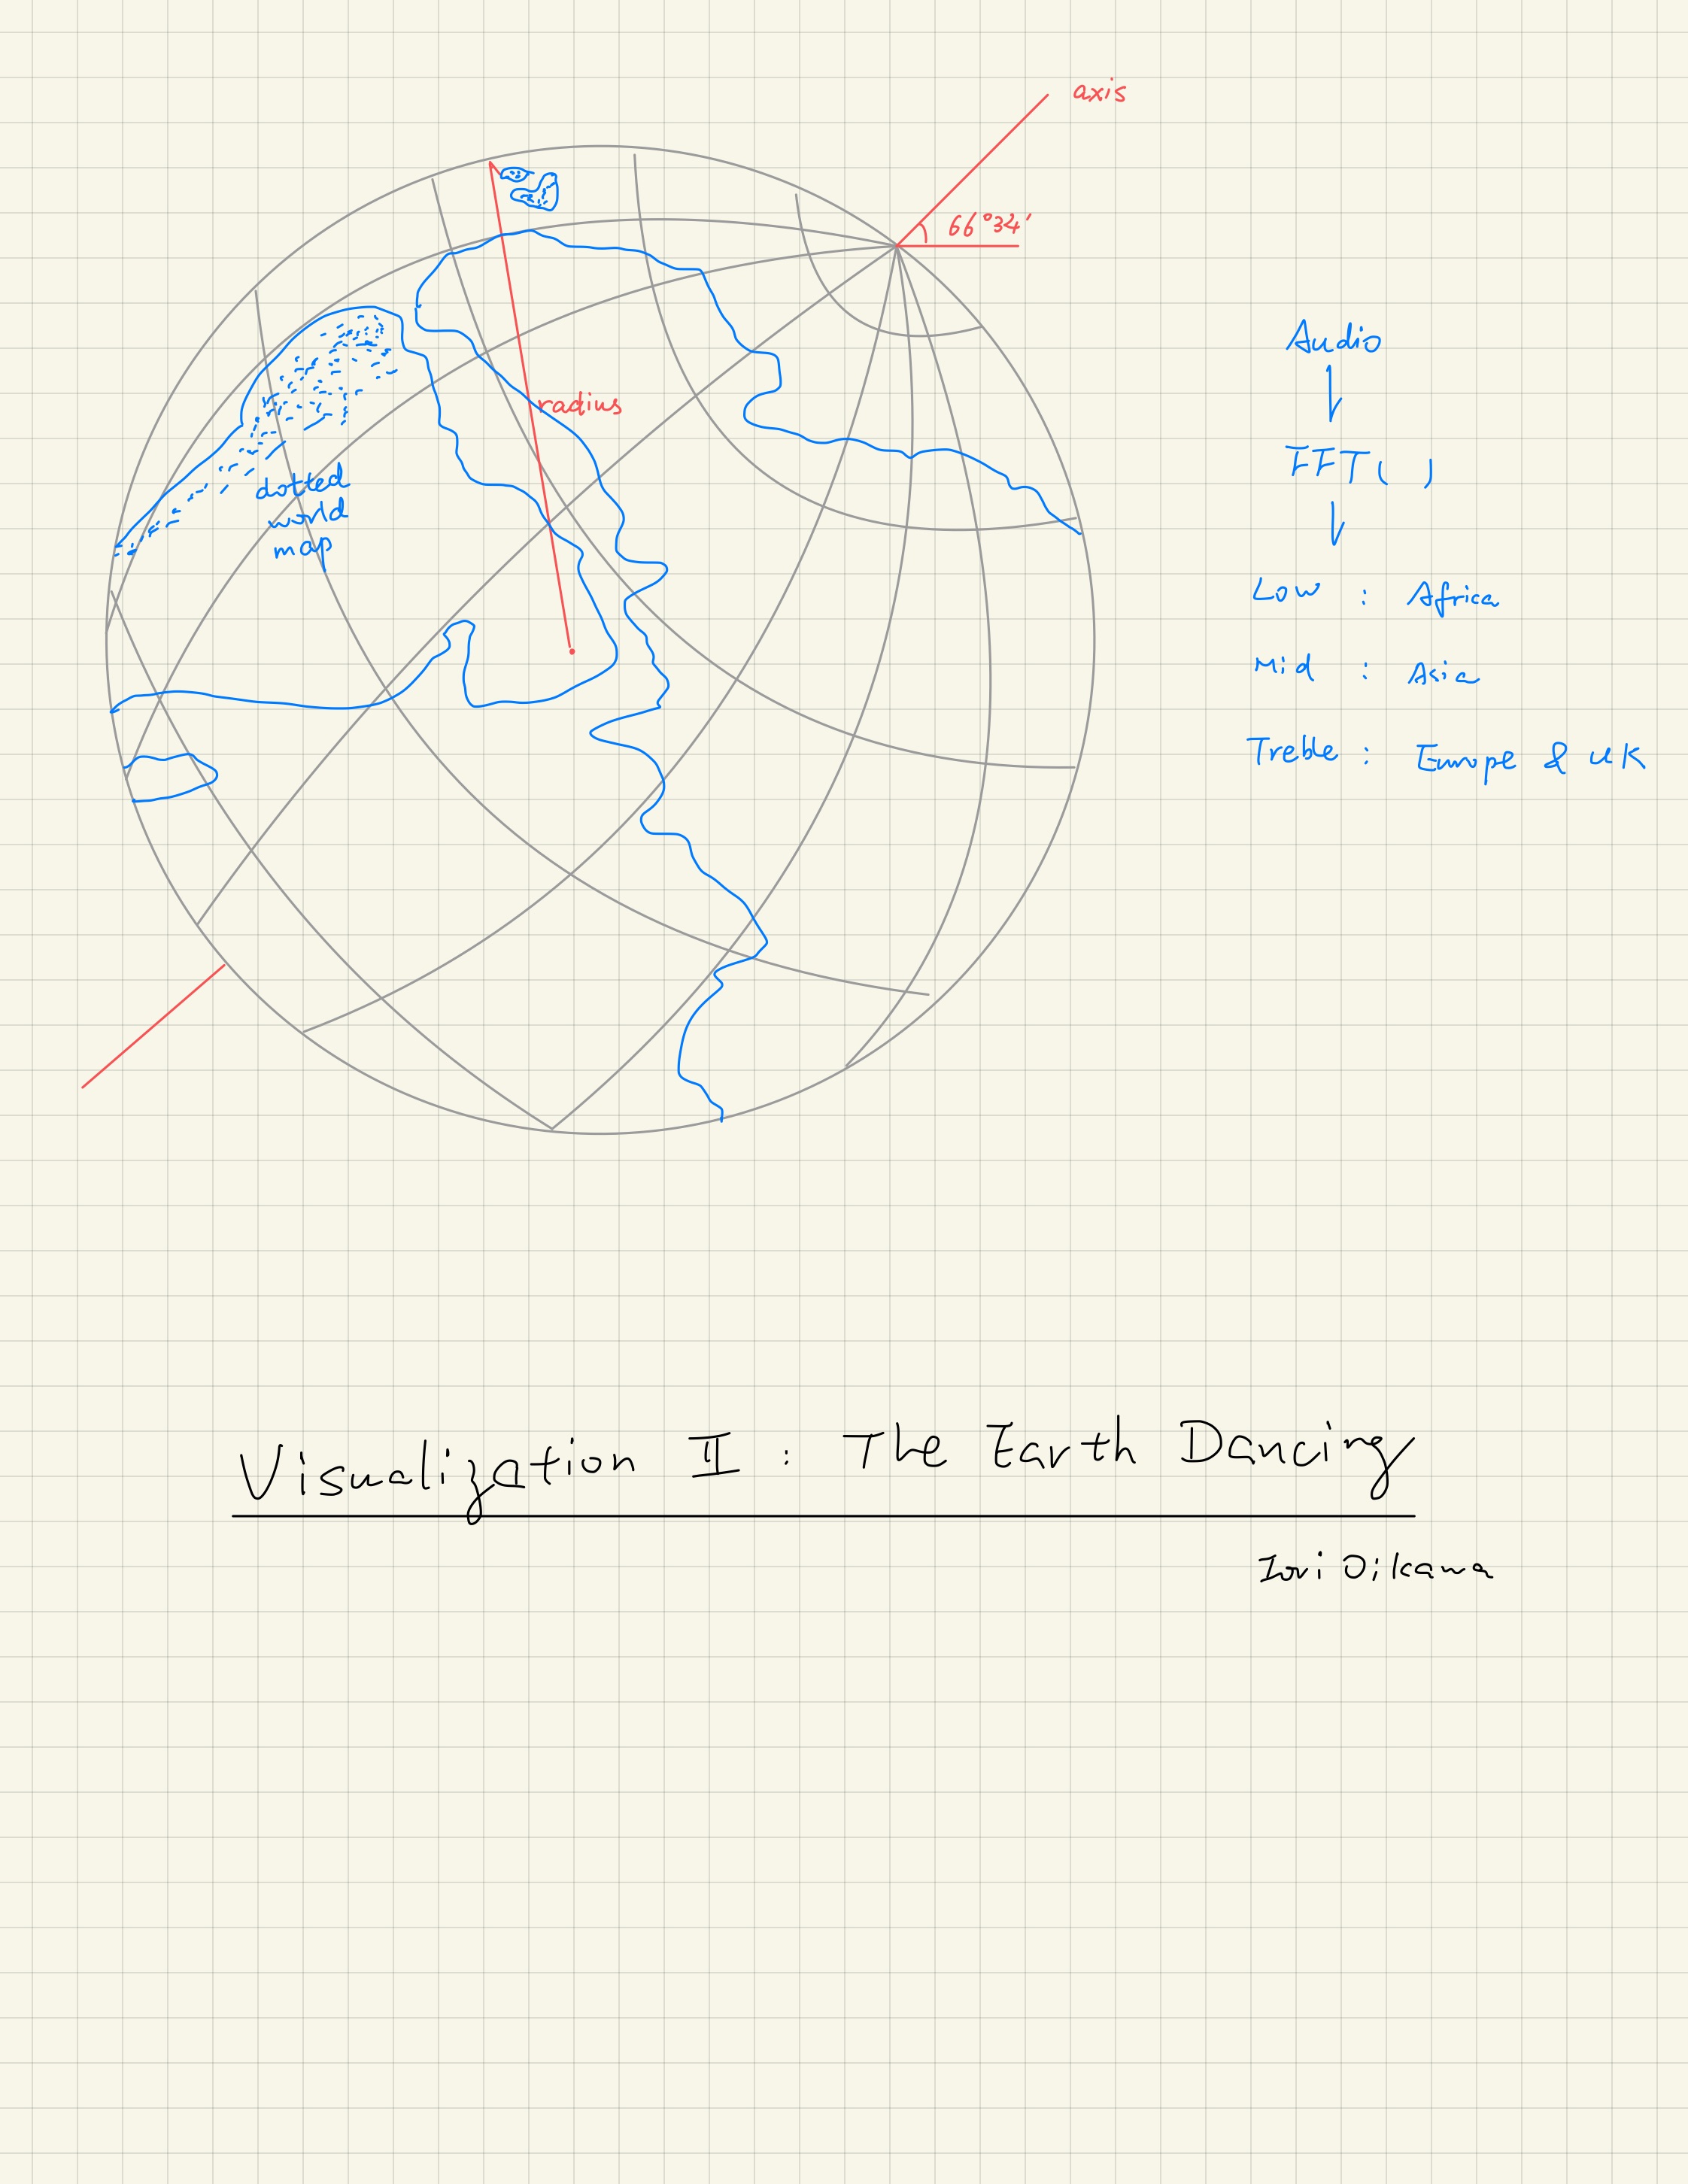 axis
66°34'
radius
dotted
world
map
Audio
FFT( )
Low : Africa
Mid : Asia
Treble : Europe & UK
Visualization II : The Earth Dancing
Iori Oikawa